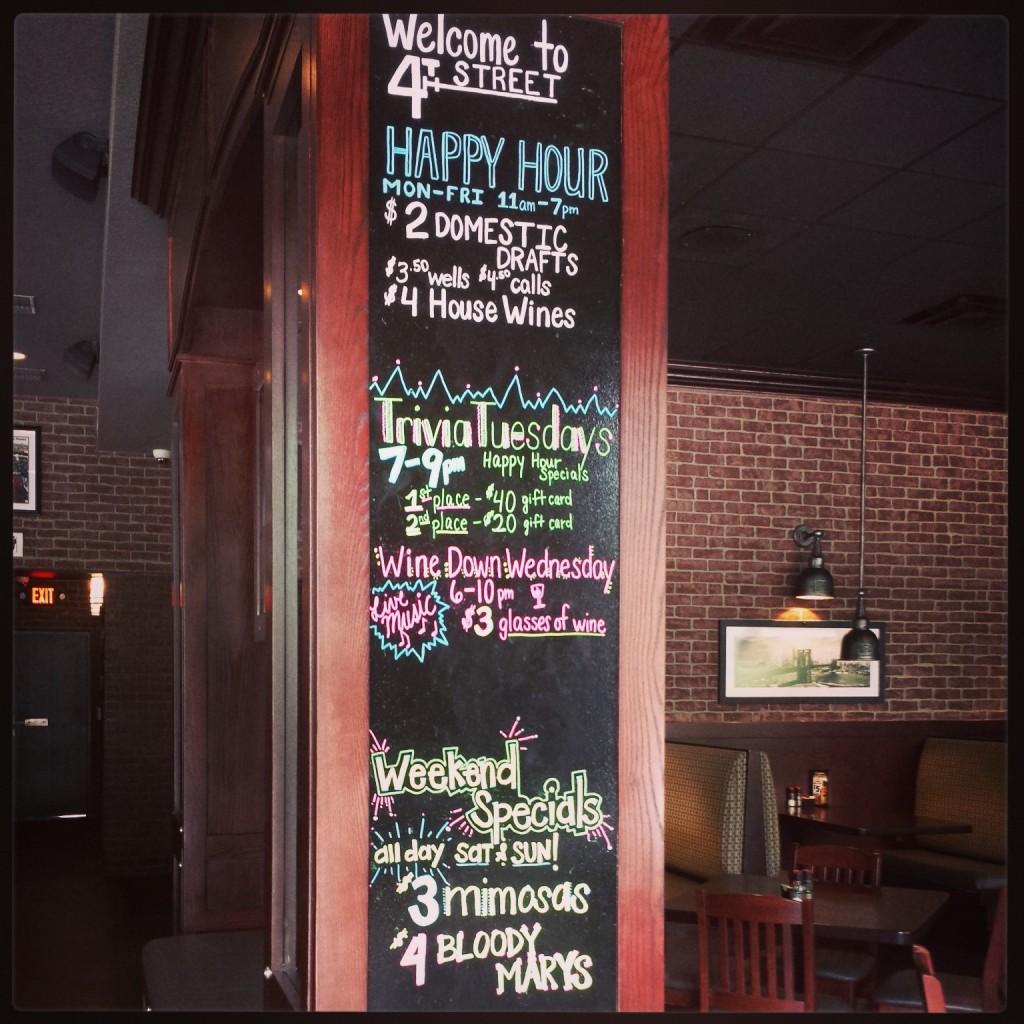 Welcome to
4TH STREET
HAPPY HOUR
MON-FRI 11am-7pm
$2 DOMESTIC
DRAFTS
$3.50 wells $4.50 calls
$4 House Wines
Trivia Tuesdays
7-9pm Happy Hour
Specials
1st place - $40 gift card
2nd place - $20 gift card
Wine Down Wednesday
Live Music 6-10pm
$3 glasses of wine
Weekend
Specials
all day SAT & SUN!
$3 mimosas
$4 BLOODY
MARYS
EXIT